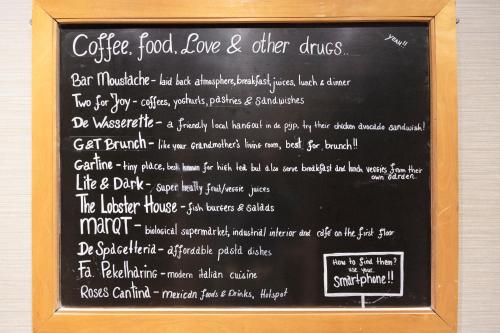 Coffee, food, Love & other drugs..
yeah!!
Bar Moustache - laid back atmosphere, breakfast, juices, lunch & dinner
Two for Joy - coffees, yoghurts, pastries & sandwishes
De Wasserette - a friendly local hangout in de pijp. try their chicken avocado sandwish!
G&T Brunch - like your grandmother's living room, best for brunch!!
Gartine - tiny place, best known for high tea but also serve breakfast and lunch veggies from their
own garden..
Lite & Dark - super heally fruit/veggie juices
The Lobster House - fish burgers & salads
MARQT - biological supermarket, industrial interior and café on the first floor
De Spagetteria - affordable pasta dishes
Fa. Pekelharing - modern italian cuisine
Roses Cantina - mexican foods & Drinks, Hotspot
How to find them?
use your
Smartphone!!